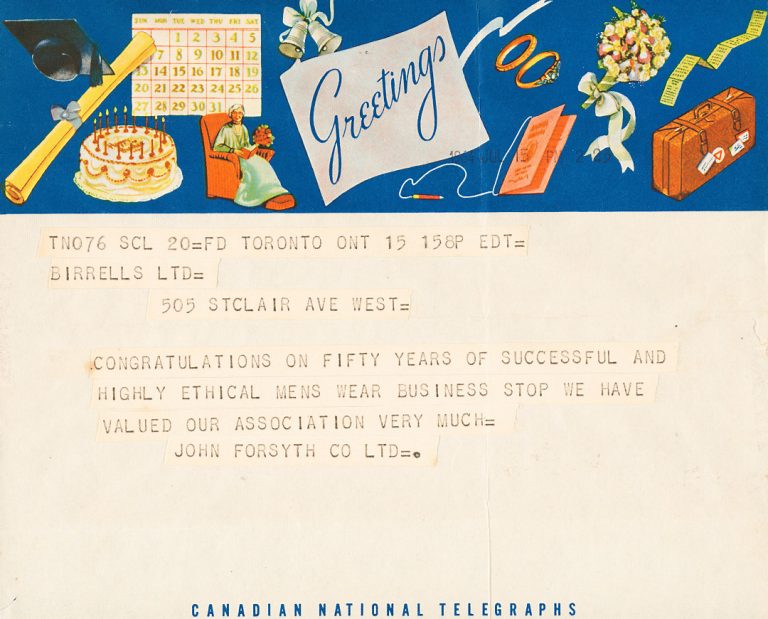 SUN MON TUE WED THU FRI SAT
1 2 3 4 5
7 8 9 10 11 12
13 14 15 16 17 18 19
20 21 22 23 24 25 26
27 28 29 30 31
Greetings
15
TN076 SCL 20=FD TORONTO ONT 15 158P EDT=
BIRRELLS LTD=
505 STCLAIR AVE WEST=
CONGRATULATIONS ON FIFTY YEARS OF SUCCESSFUL AND
HIGHLY ETHICAL MENS WEAR BUSINESS STOP WE HAVE
VALUED OUR ASSOCIATION VERY MUCH=
JOHN FORSYTH CO LTD=.
CANADIAN NATIONAL TELEGRAPHS